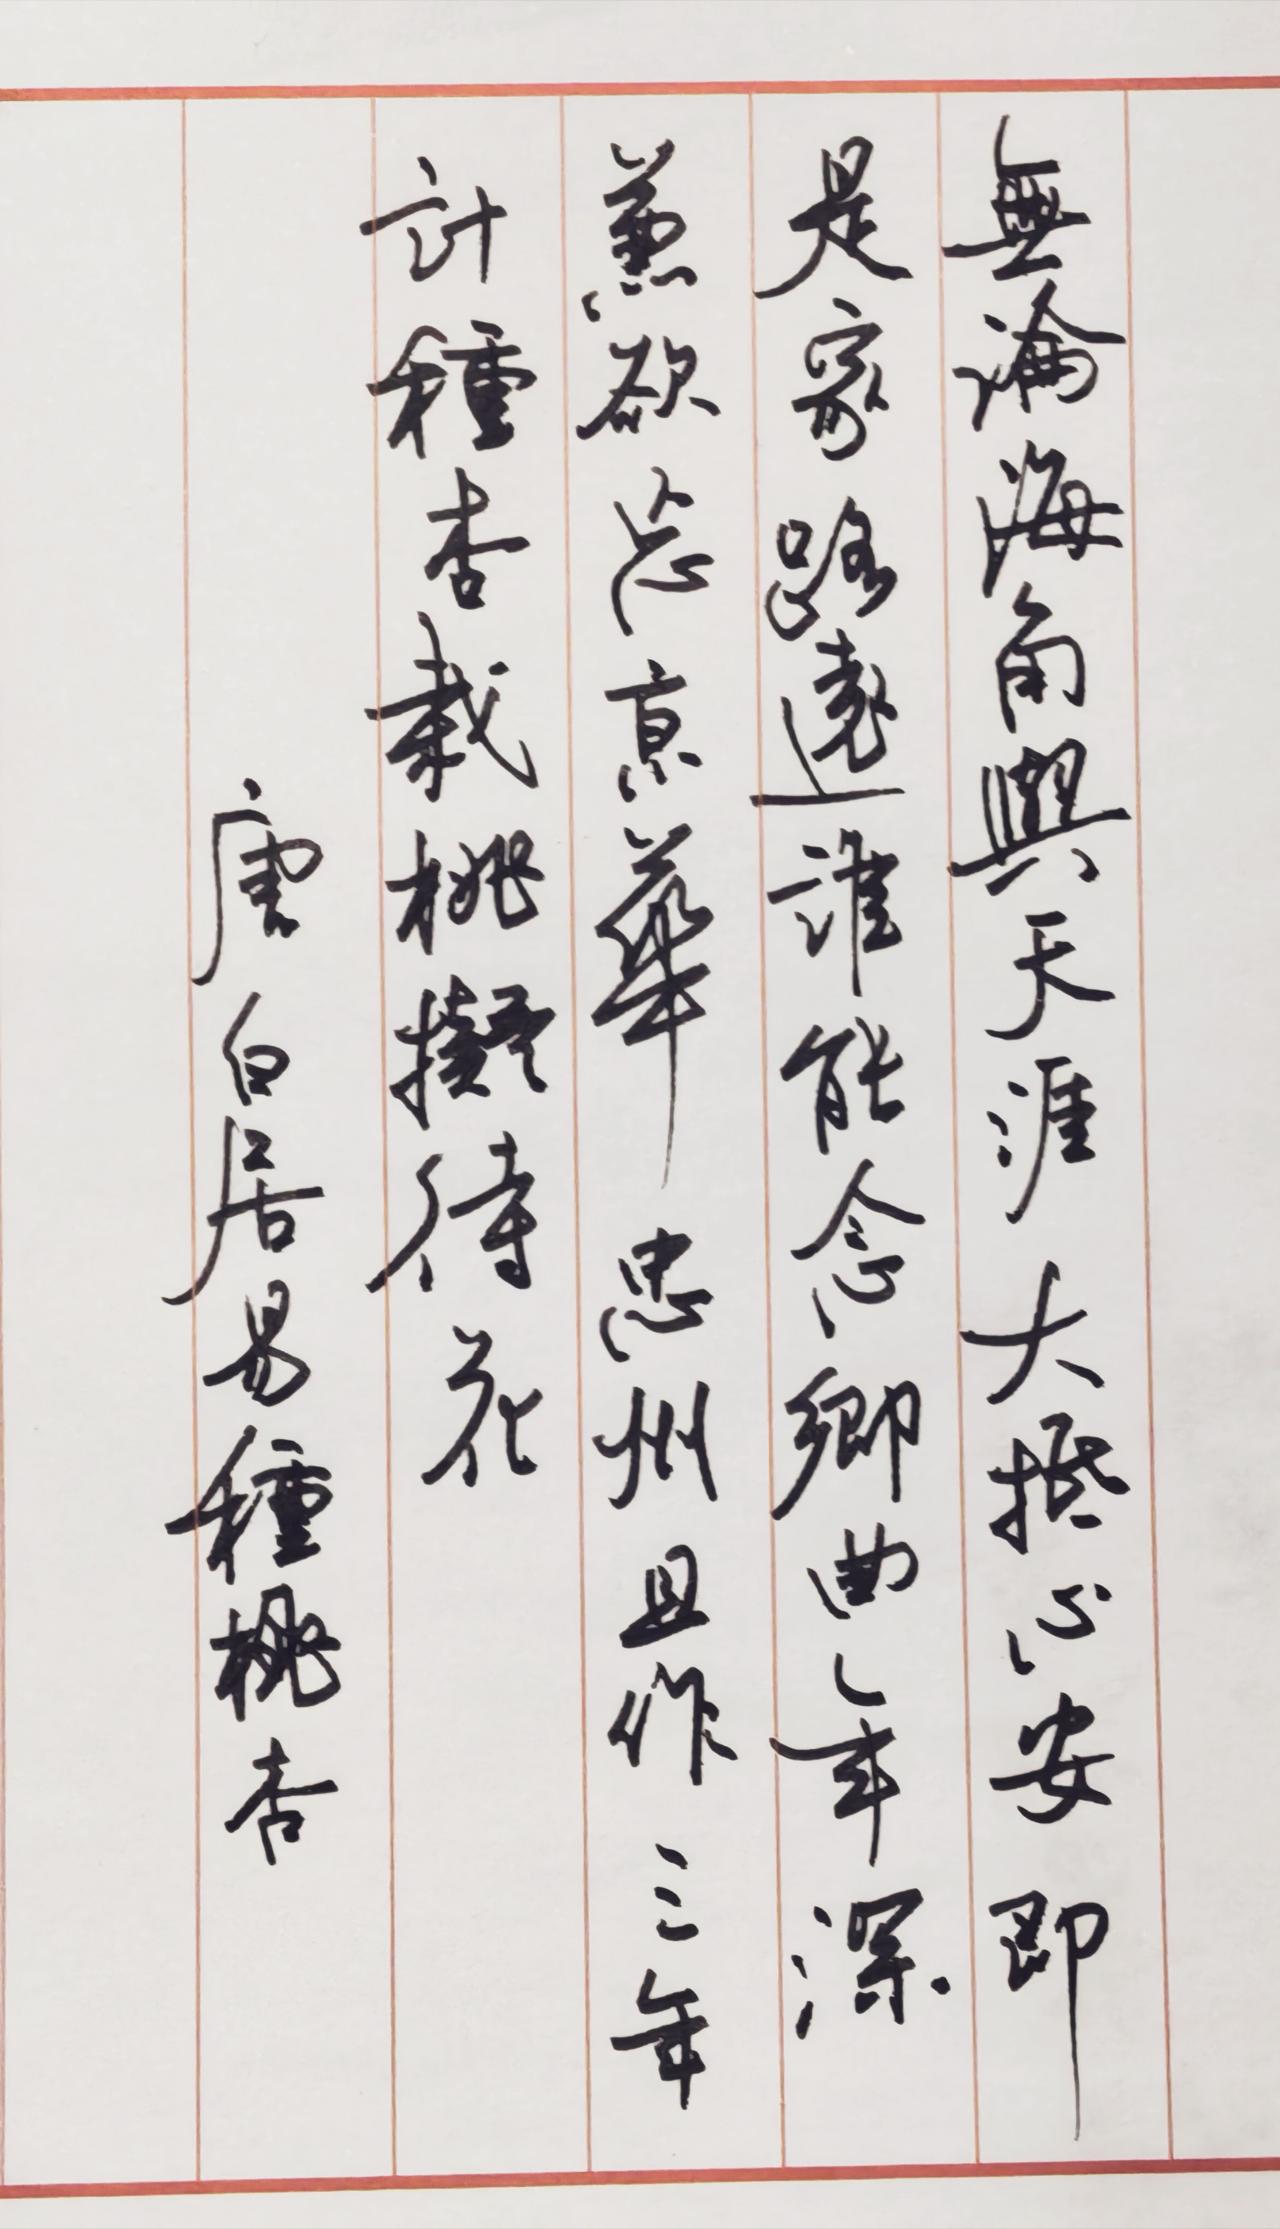 無論海角與天涯大抵心安即
是家路遠誰能念鄉曲年深
兼欲忘京華忠州且作三年
計種杏栽桃擬待花
唐白居易種桃杏